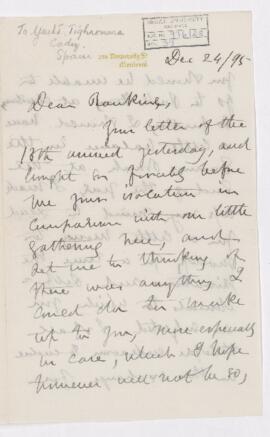 To Yacht Tighnamara
Cadiz
Spain
Montreal
Dec 24/95
Dear Rankine,
Your letter of the
13th arrived yesterday, and
brought so forcibly before
me your isolation in
comparison with our little
gathering here, and
set me to thinking if
there was anything I
could do to make
up to you, more especially
in case, which I hope
however will not be so,